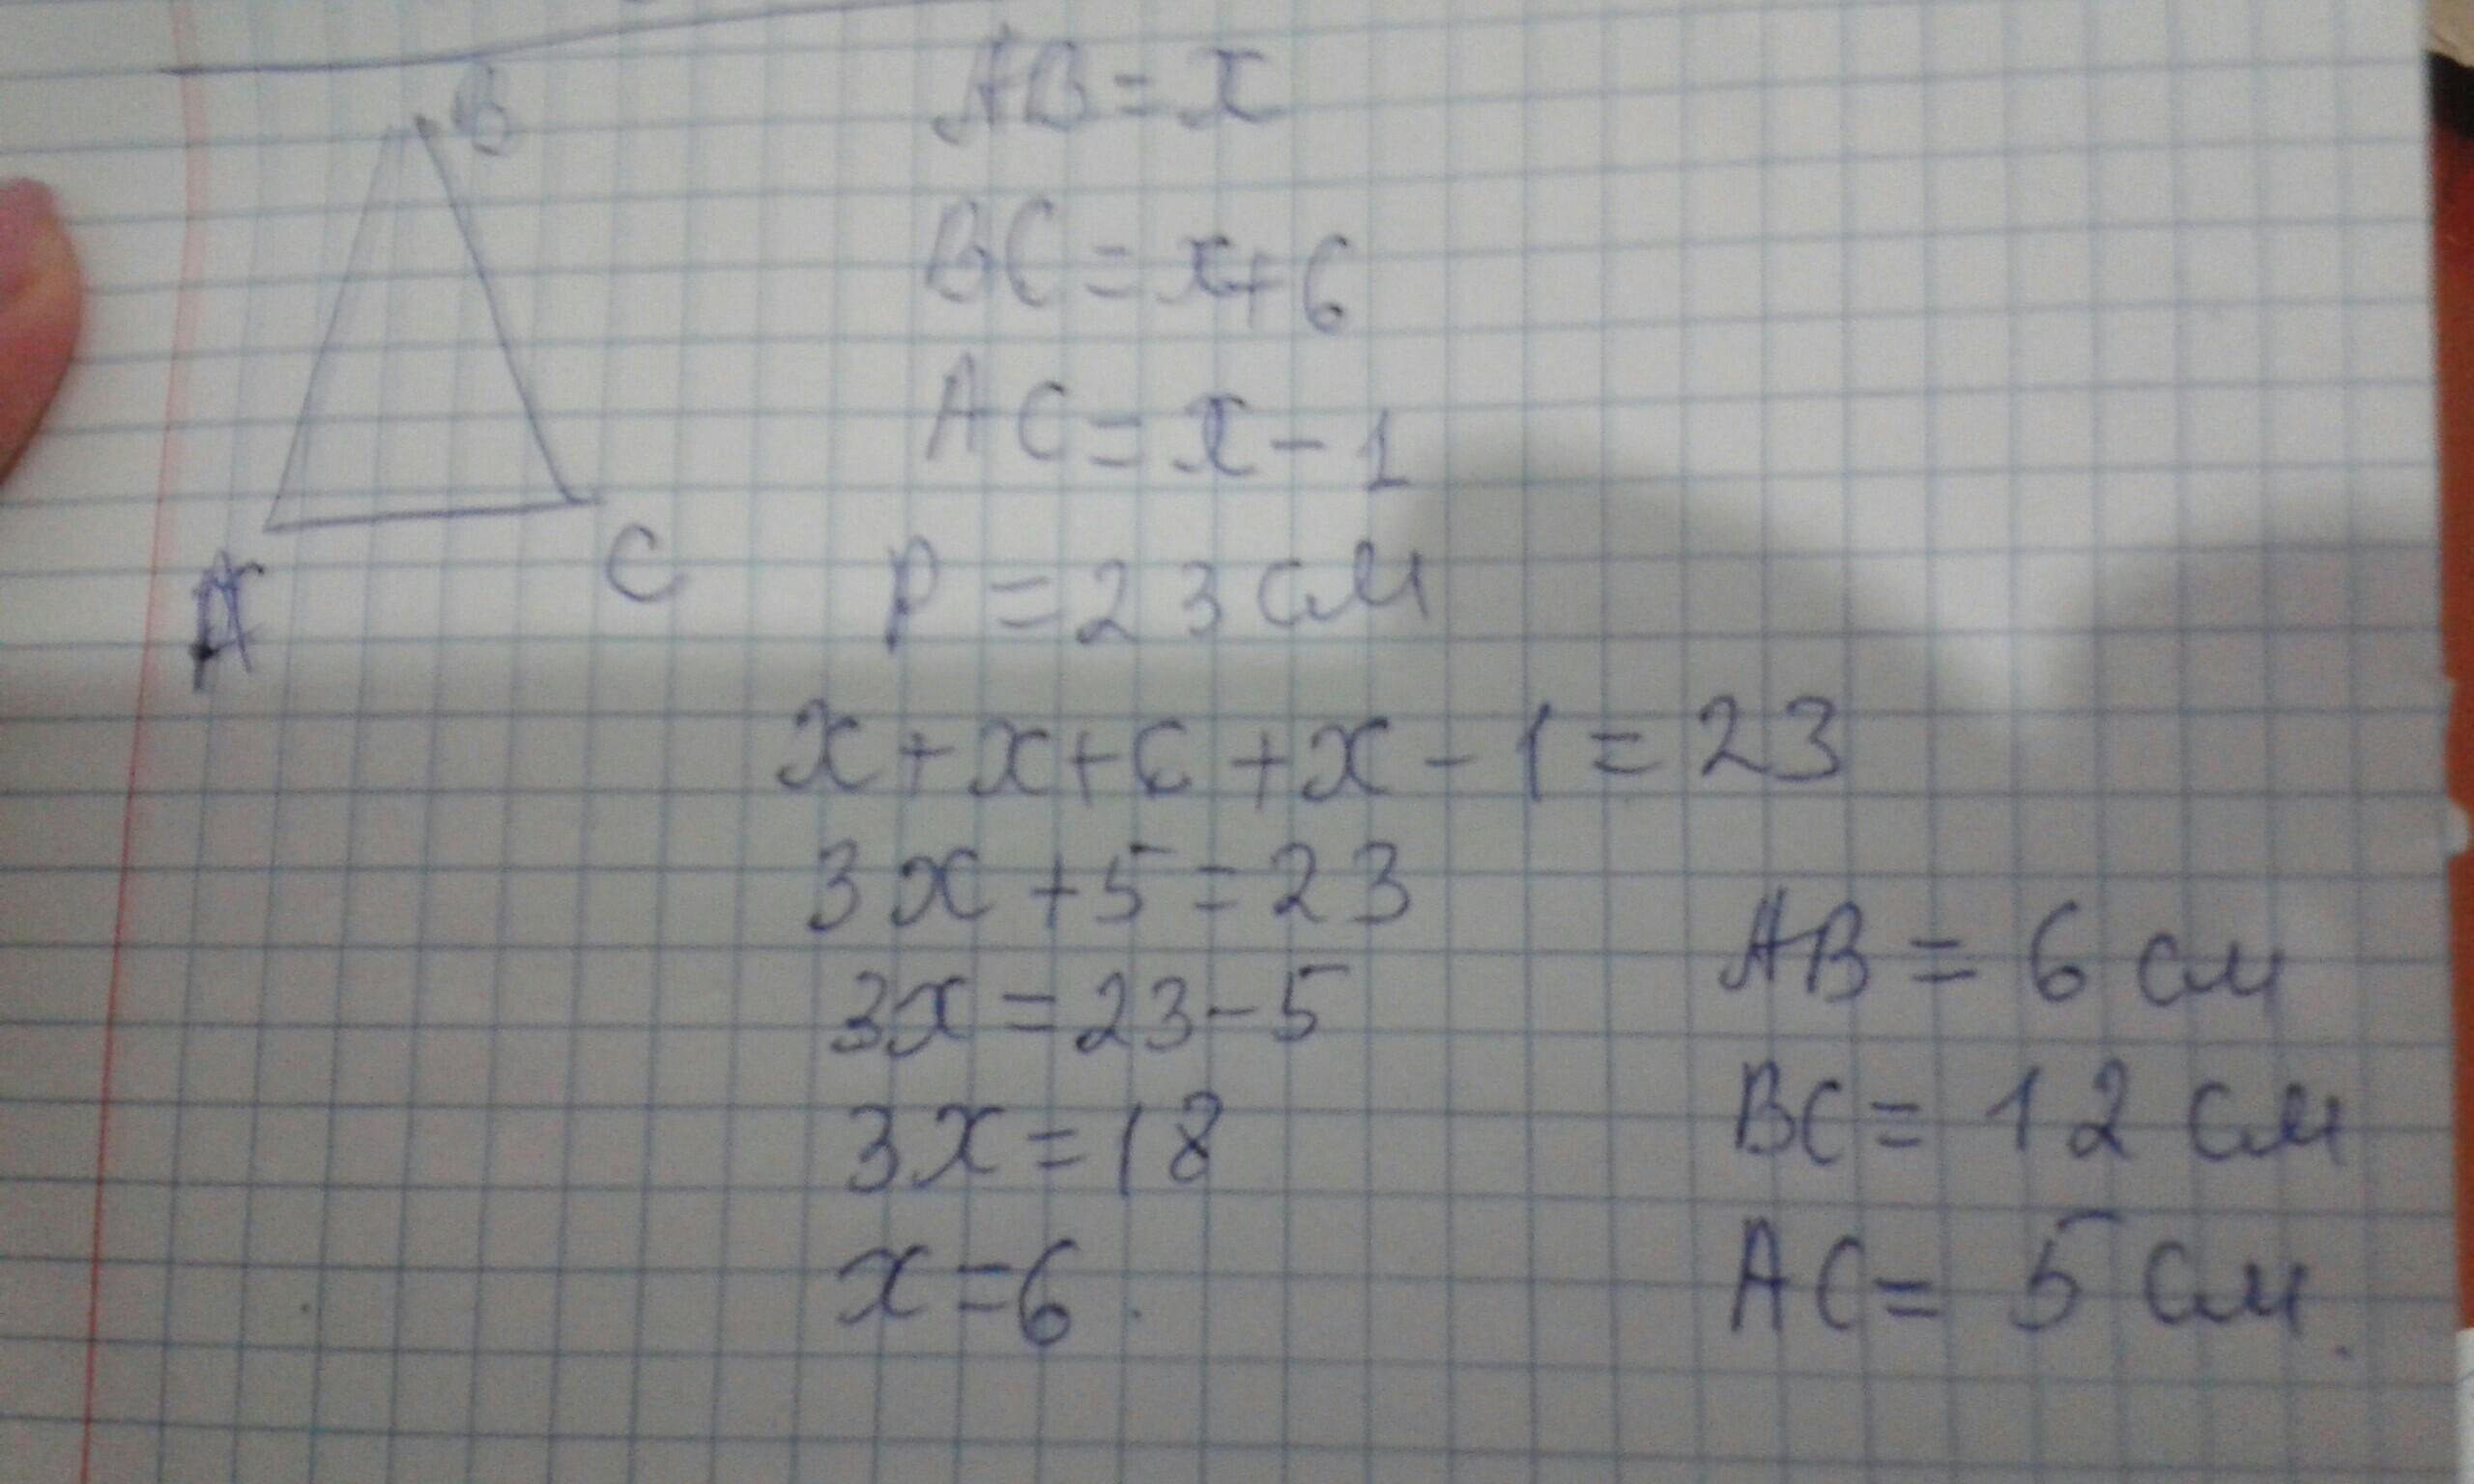 B
A
C
AB = x
BC = x+6
AC = x - 1
P = 23 см
x + x + 6 + x - 1 = 23
3x + 5 = 23
3x = 23 - 5
3x = 18
x = 6.
AB = 6 см
BC = 12 см
AC = 5 см.